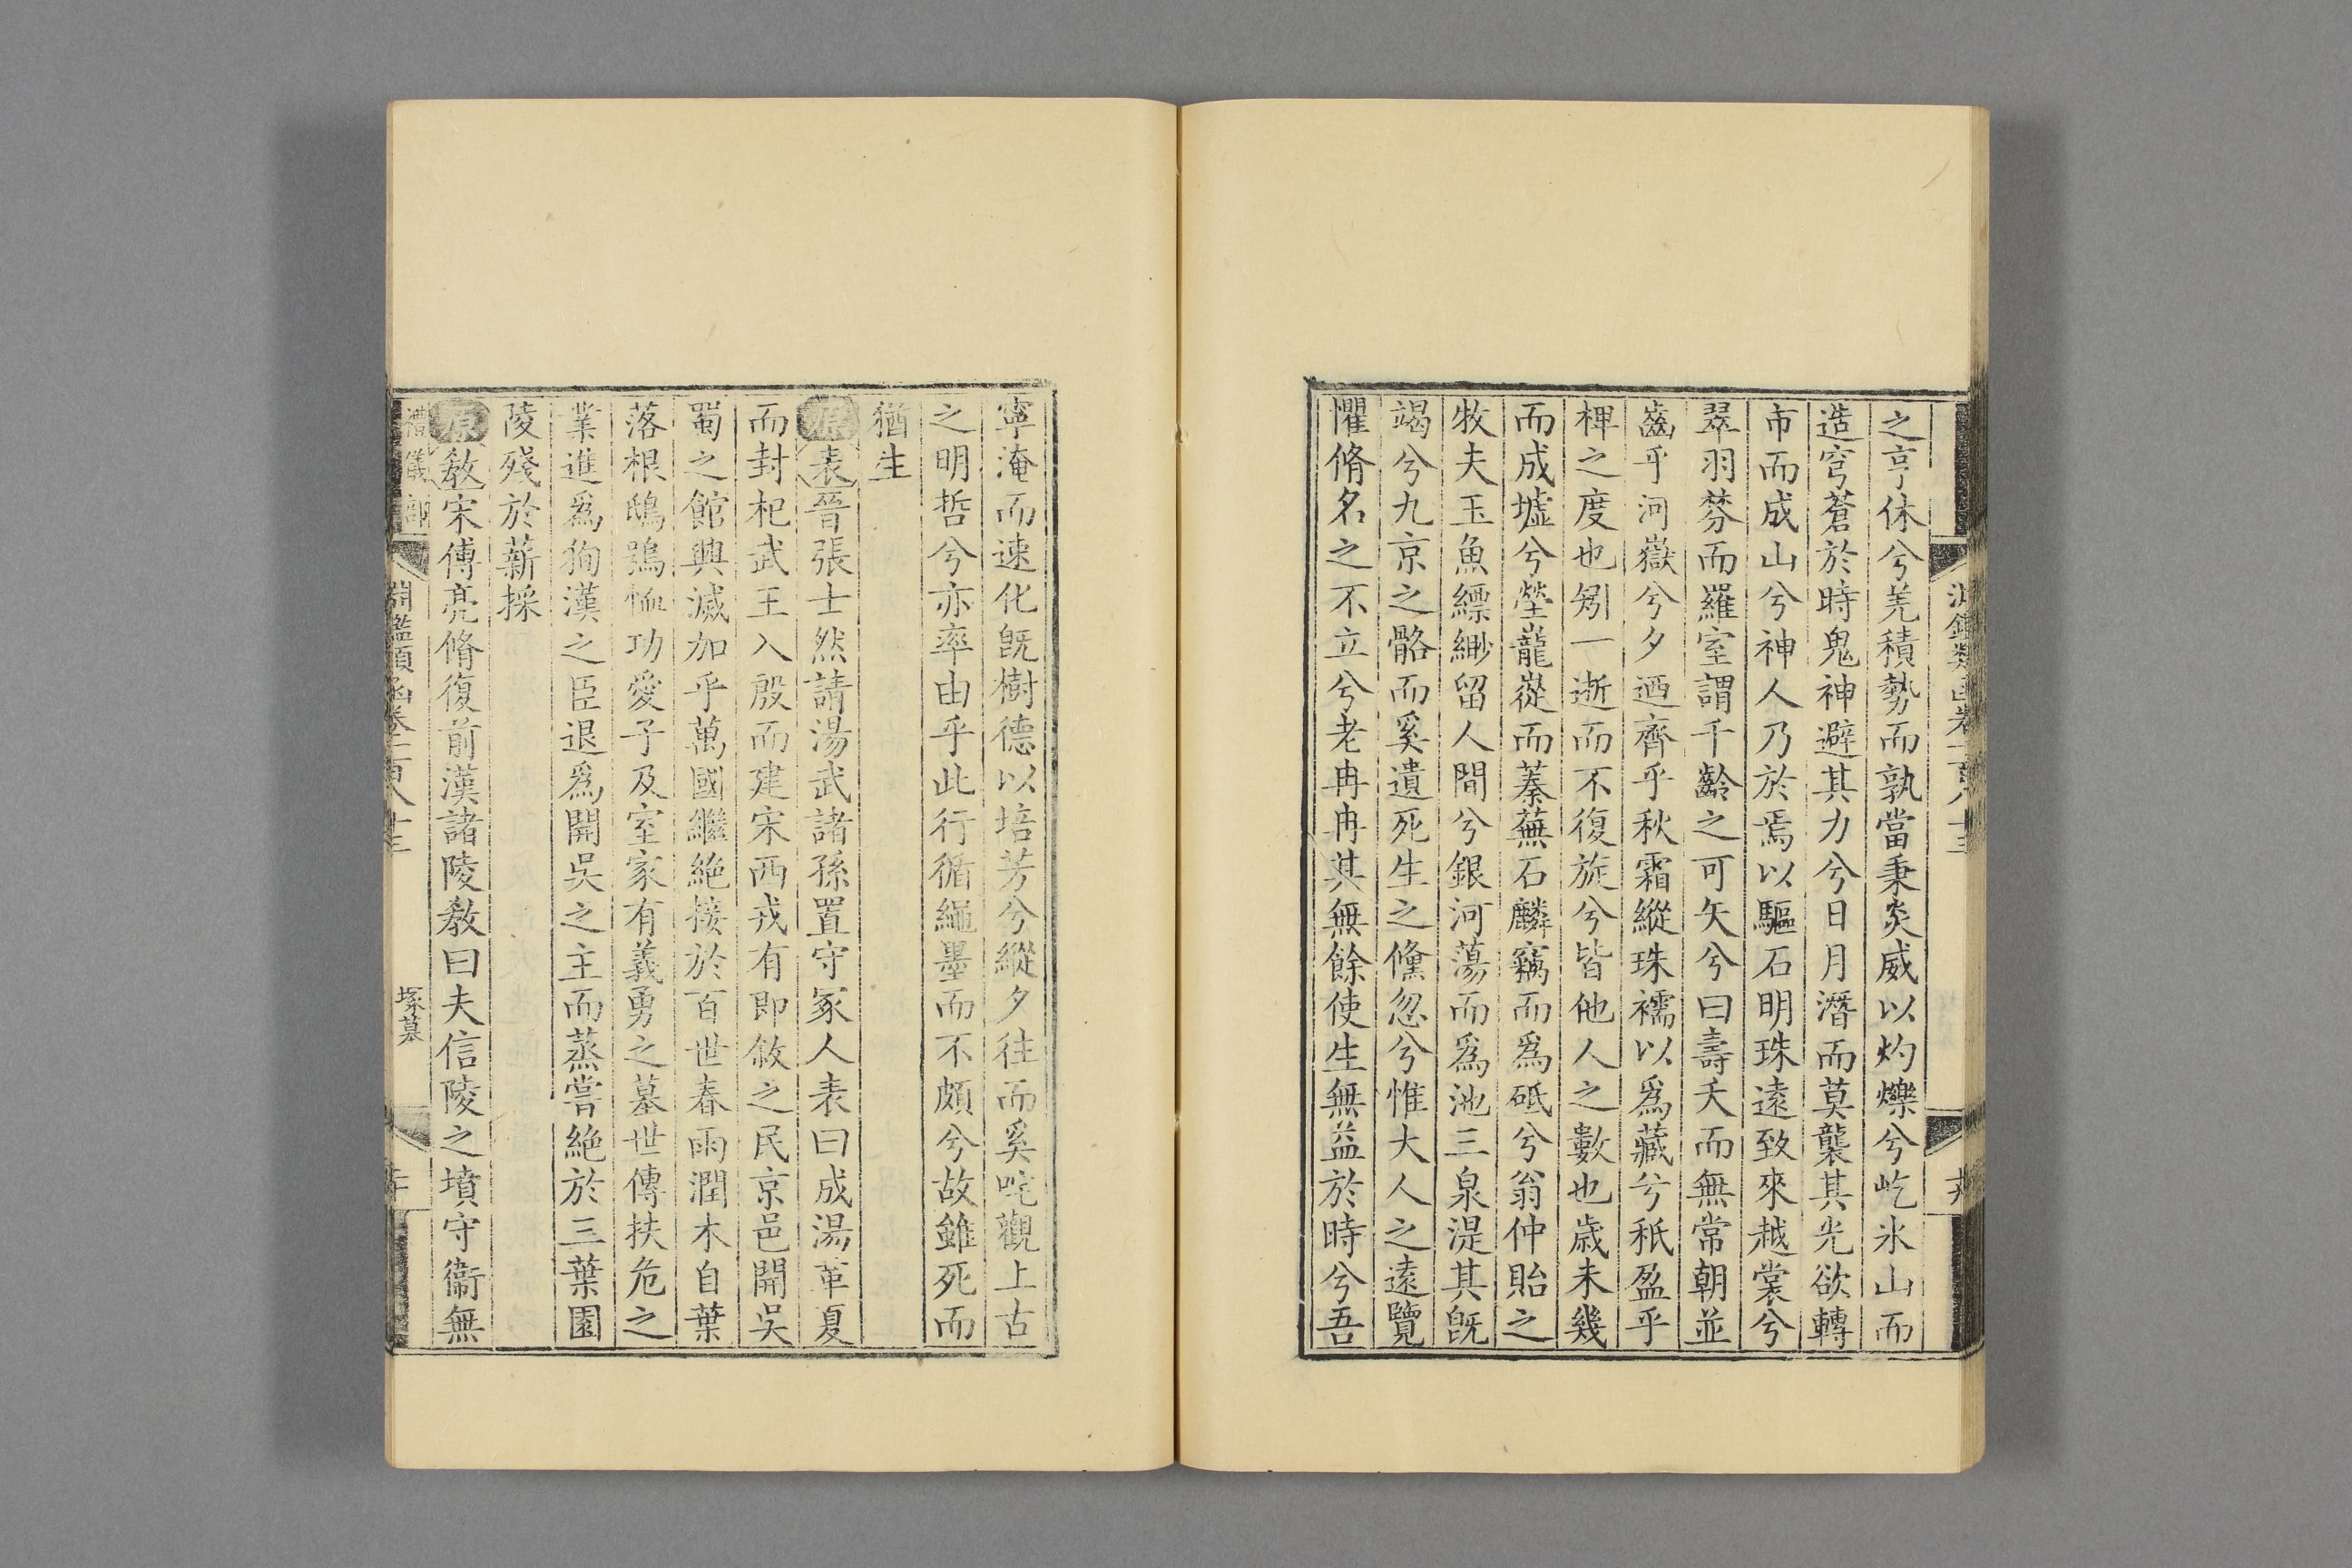 淵鑑類函卷一百八十三
之亨休兮羌積勢而孰當秉炎威以灼爍兮屹氷山而
造穹蒼於時鬼神避其力兮日月潛而莫襲其光欲轉
市而成山兮神人乃於焉以驅石明珠遠致來越裳兮
翠羽棼而羅室謂千齡之可矢兮曰壽夭而無常朝並
齒乎河嶽兮夕迺齊乎秋霜縱珠襦以爲藏兮秖盈乎
椑之度也矧一逝而不復旋兮皆他人之數也歲未幾
而成墟兮塋巃嵸而蓁蕪石麟竊而爲砥兮翁仲貽之
牧夫玉魚縹緲留人間兮銀河蕩而爲池三泉湜其旣
竭兮九京之骼而奚遺死生之儵忽兮惟大人之遠覽
懼脩名之不立兮老冉冉其無餘使生無益於時兮吾
寧淹而速化旣樹德以培芳兮縱夕往而奚咤觀上古
之明哲兮亦率由乎此行循繩墨而不頗兮故雖死而
猶生
原表晉張士然請湯武諸孫置守冢人表曰成湯革夏
而封杞武王入殷而建宋西戎有即敘之民京邑開吳
蜀之館興滅加乎萬國繼絶接於百世春雨潤木自葉
落根鴟鴞恤功愛子及室家有義勇之墓世傳扶危之
業進爲狥漢之臣退爲開吳之主而蒸嘗絶於三葉園
陵殘於薪採
原教宋傅亮脩復前漢諸陵敎曰夫信陵之墳守衞無
禮儀部
淵鑑類函卷一百八十三
塚墓